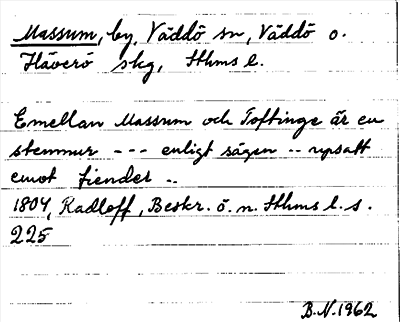 Massum, by, Väddö sn, Väddö o.
Häverö skg, Sthms l.
Emellan Massum och Toftinge är en
stenmur --- enligt sägen -- upsatt
emot fiender --
1804, Radloff, Beskr. ö. n. Sthms l. s.
225
B.N. 1962